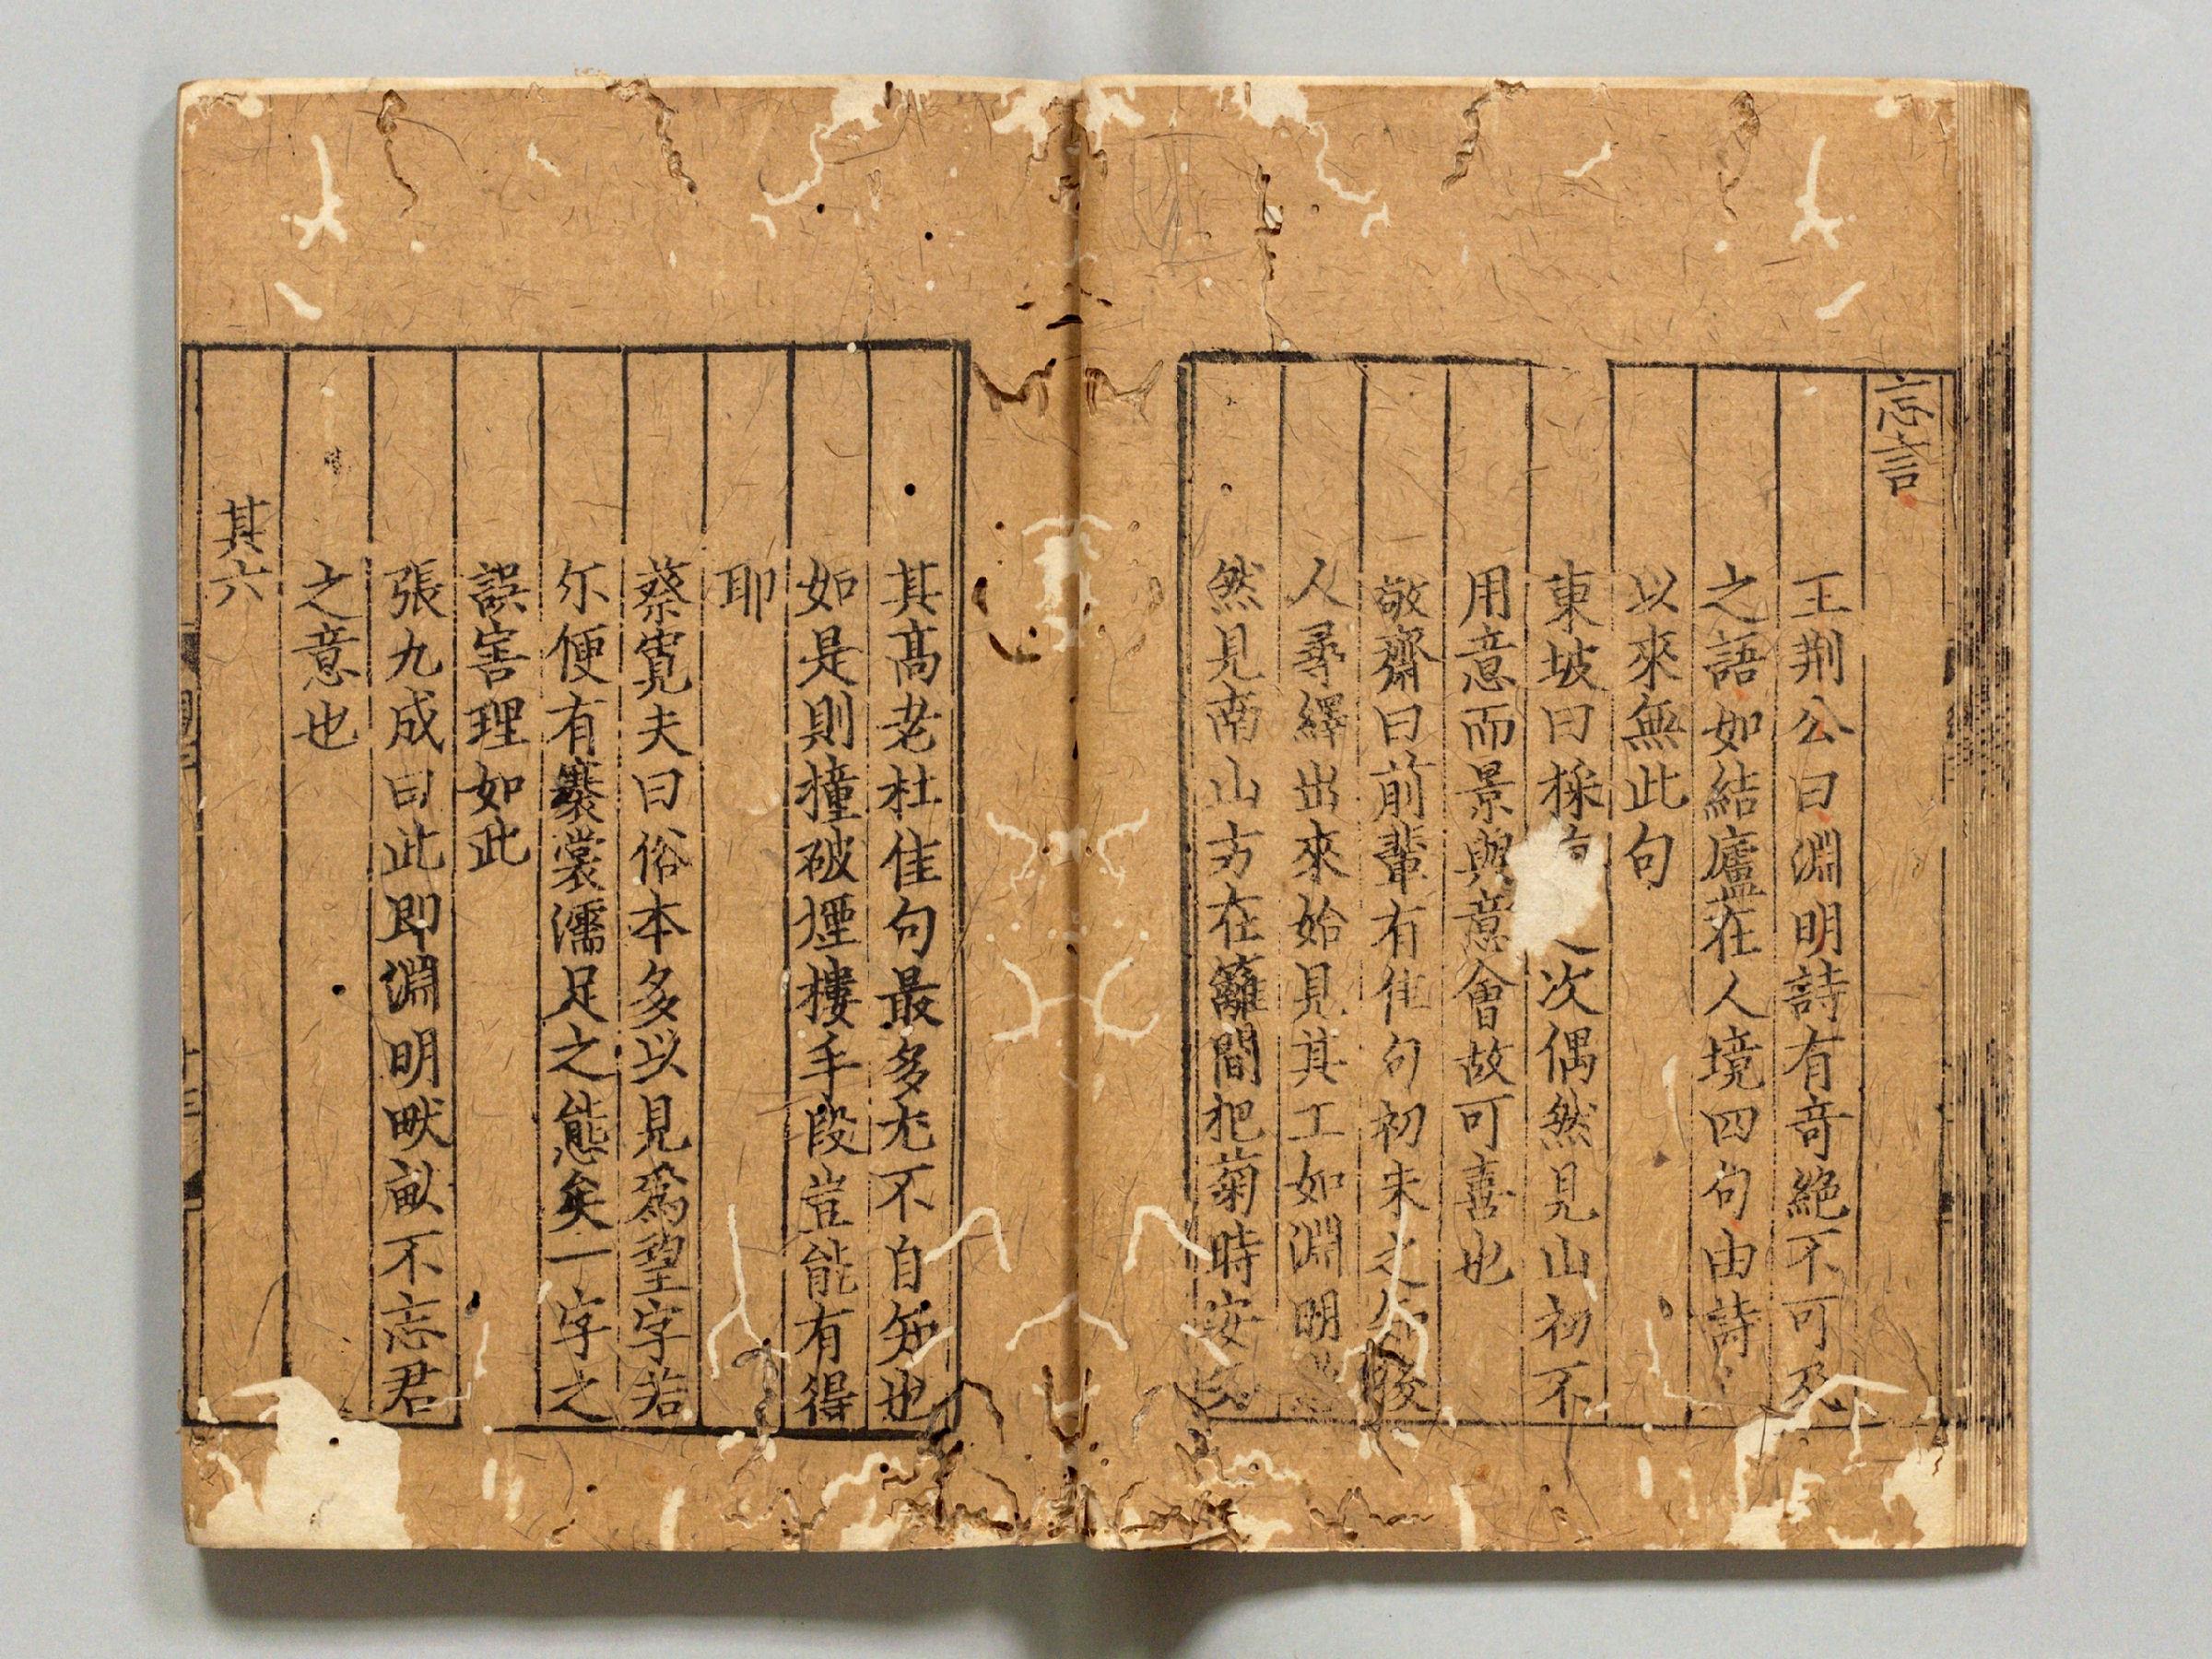 忘言
王荆公曰淵明詩有奇絶不可及
之語如結廬在人境四句由詩人
以來無此句
東坡曰採之次偶然見山初不
用意而景與意會故可喜也
敬齋曰前輩有佳句初未之知後
人尋繹出來始見其工如淵明悠
然見南山方在籬間把菊時安知
其高老杜佳句最多尤不自知也
如是則撞破煙樓手段豈能有得
耶
蔡寬夫曰俗本多以見爲望字若
尓便有褰裳濡足之態矣一字之
誤害理如此
張九成曰此即淵明畎畝不忘君
之意也
其六